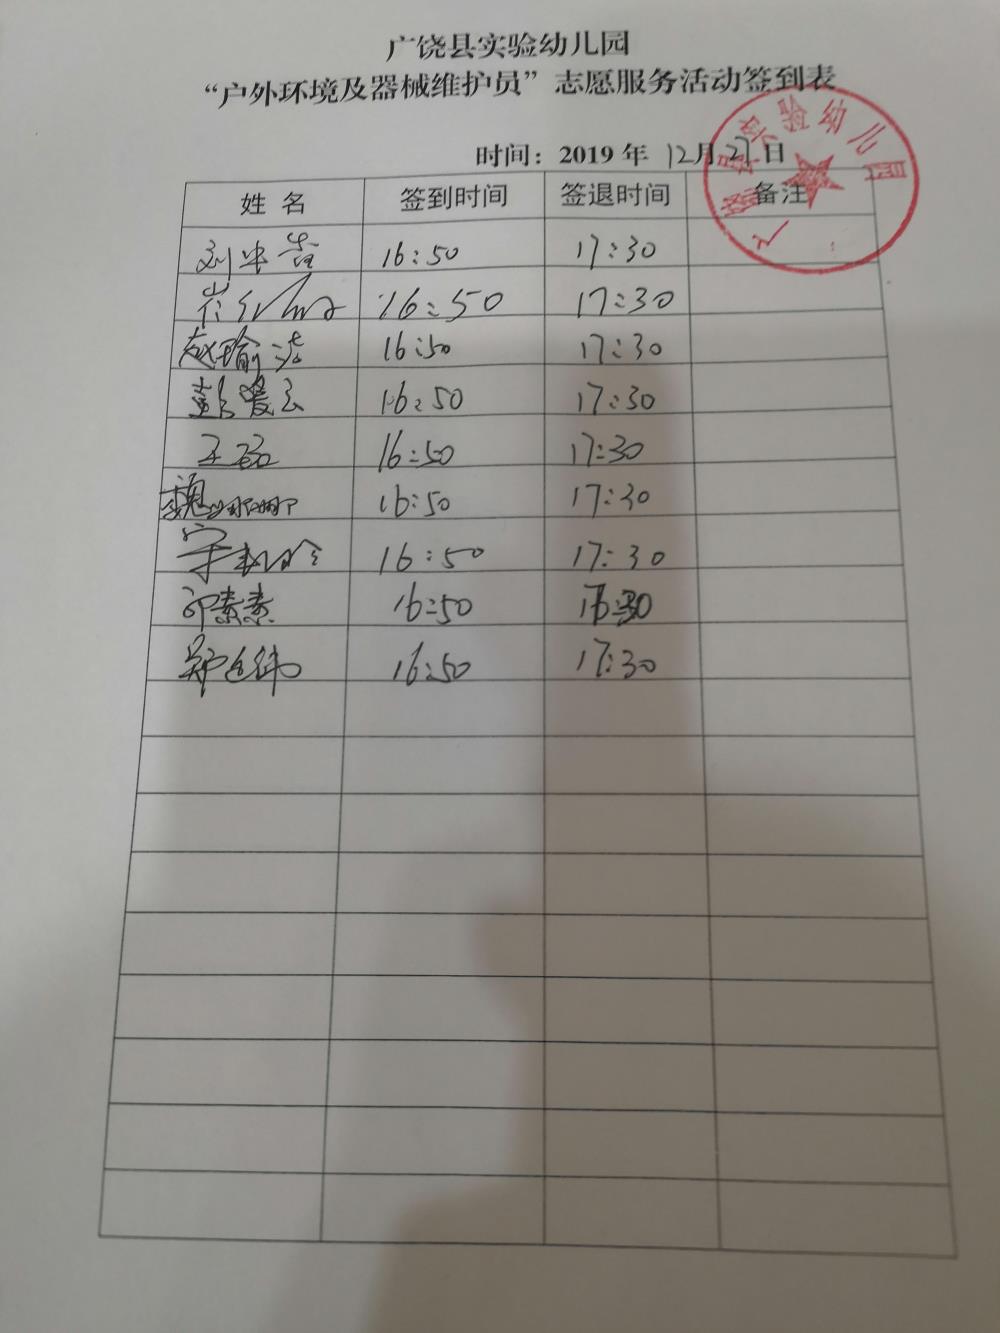 广饶县实验幼儿园
“户外环境及器械维护员”志愿服务活动签到表
时间：2019 年 12月27日
姓 名 签到时间 签退时间 备注
广饶县实验幼儿园
16:50 17:30
崔 16:50 17:30
赵瑜洁 16:50 17:30
彭爱云 16:50 17:30
王 16:50 17:30
魏娜娜 16:50 17:30
宋 16:50 17:30
邱素素 16:50
郑 16:50 17:30